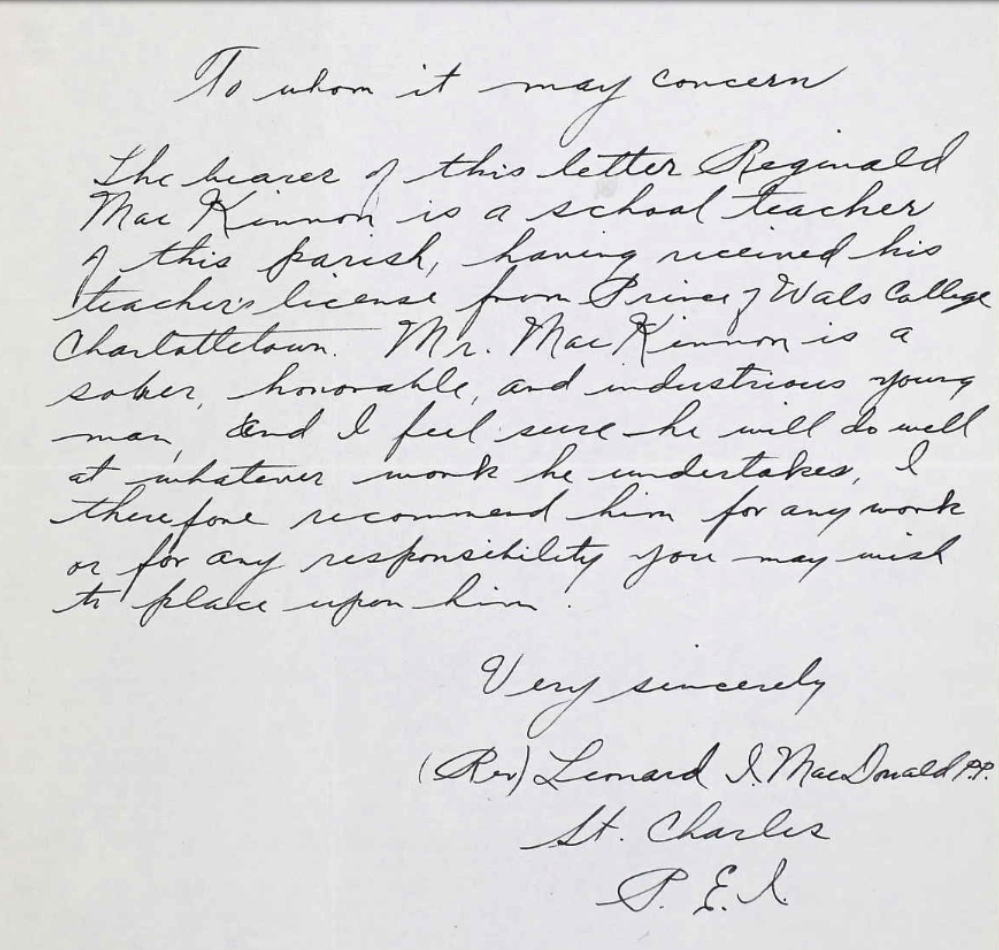 To whom it may concern
The bearer of this letter Reginald
Mac Kinnon is a school teacher
of this parish, having received his
teacher's license from Prince of Wals College
Charlottetown. Mr. Mac Kinnon is a
sober, honorable, and industrious young
man, and I feel sure he will do well
at whatever work he undertakes, I
therefore recommend him for any work
or for any responsibility you may wish
to place upon him.
Very sincerely
(Rev) Leonard I. MacDonald P.P.
St. Charles
P. E. I.